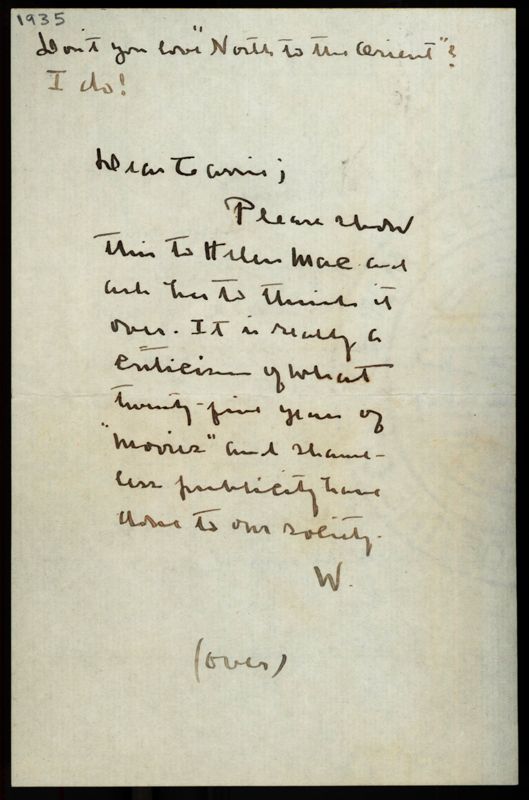 1935
Don't you love "North to the Orient"?
I do!
Dear Carrie;
Please show
this to Helen Mae and
ask her to think it
over. It is really a
criticism of what
twenty-five years of
"movies" and shame-
less publicity have
done to our society.
W.
(over)